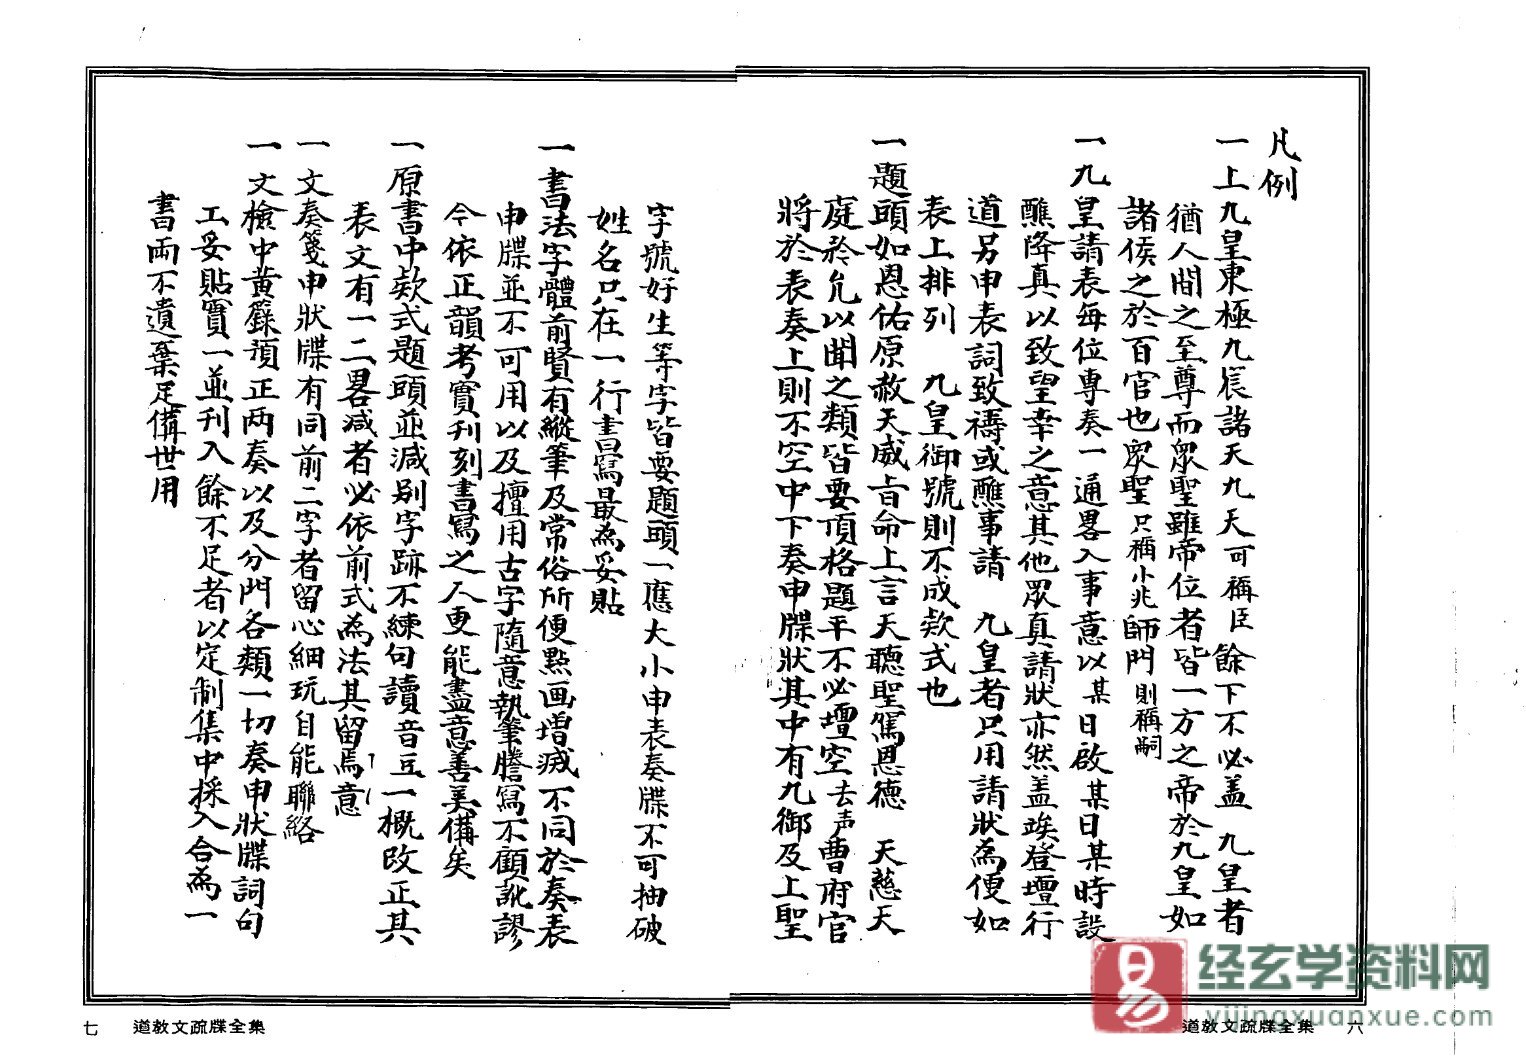 凡例
一上九皇東極九宸諸天九天可稱臣餘下不必盖　九皇者
猶人間之至尊而眾聖雖帝位者皆一方之帝於九皇如
諸侯之於百官也眾聖只稱小兆師門則稱嗣
一九皇請表每位專奏一通畧入事意以某日啟某日某時設
醮降真以致望幸之意其他眾真請狀亦然盖竢登壇行
道另申表詞致禱或醮事請　九皇者只用請狀為便如
表上排列　九皇御號則不成欵式也
一題頭如恩佑原赦天威旨命上言天聽聖駕恩德　天慈天
庭矜允以聞之類皆要頂格題平不必壇空去声曹府官
將於表奏上則不空中下奏申牒狀其中有九御及上聖
字號好生等字皆要題頭一應大小申表奏牒不可抽破
姓名只在一行書寫最為妥貼
一書法字體前賢有縱筆及常俗所便點画增減不同於奏表
申牒並不可用以及擅用古字隨意執筆謄寫不顧訛謬
今依正韻考實刋刻書寫之人更能盡意善美備矣
一原書中欵式題頭並減別字跡不練句讀音豆一概改正其
表文有一二畧減者必依前式為法其留焉意
一文奏箋申狀牒有同前二字者留心細玩自能聯絡
一文檢中黄籙預正两奏以及分門各類一切奏申狀牒詞句
工妥貼實一並刋入餘不足者以定制集中採入合為一
書両不遺棄足備世用
七　道教文疏牒全集
道教文疏牒全集　六
经玄学资料网
yijingxuanxue.com